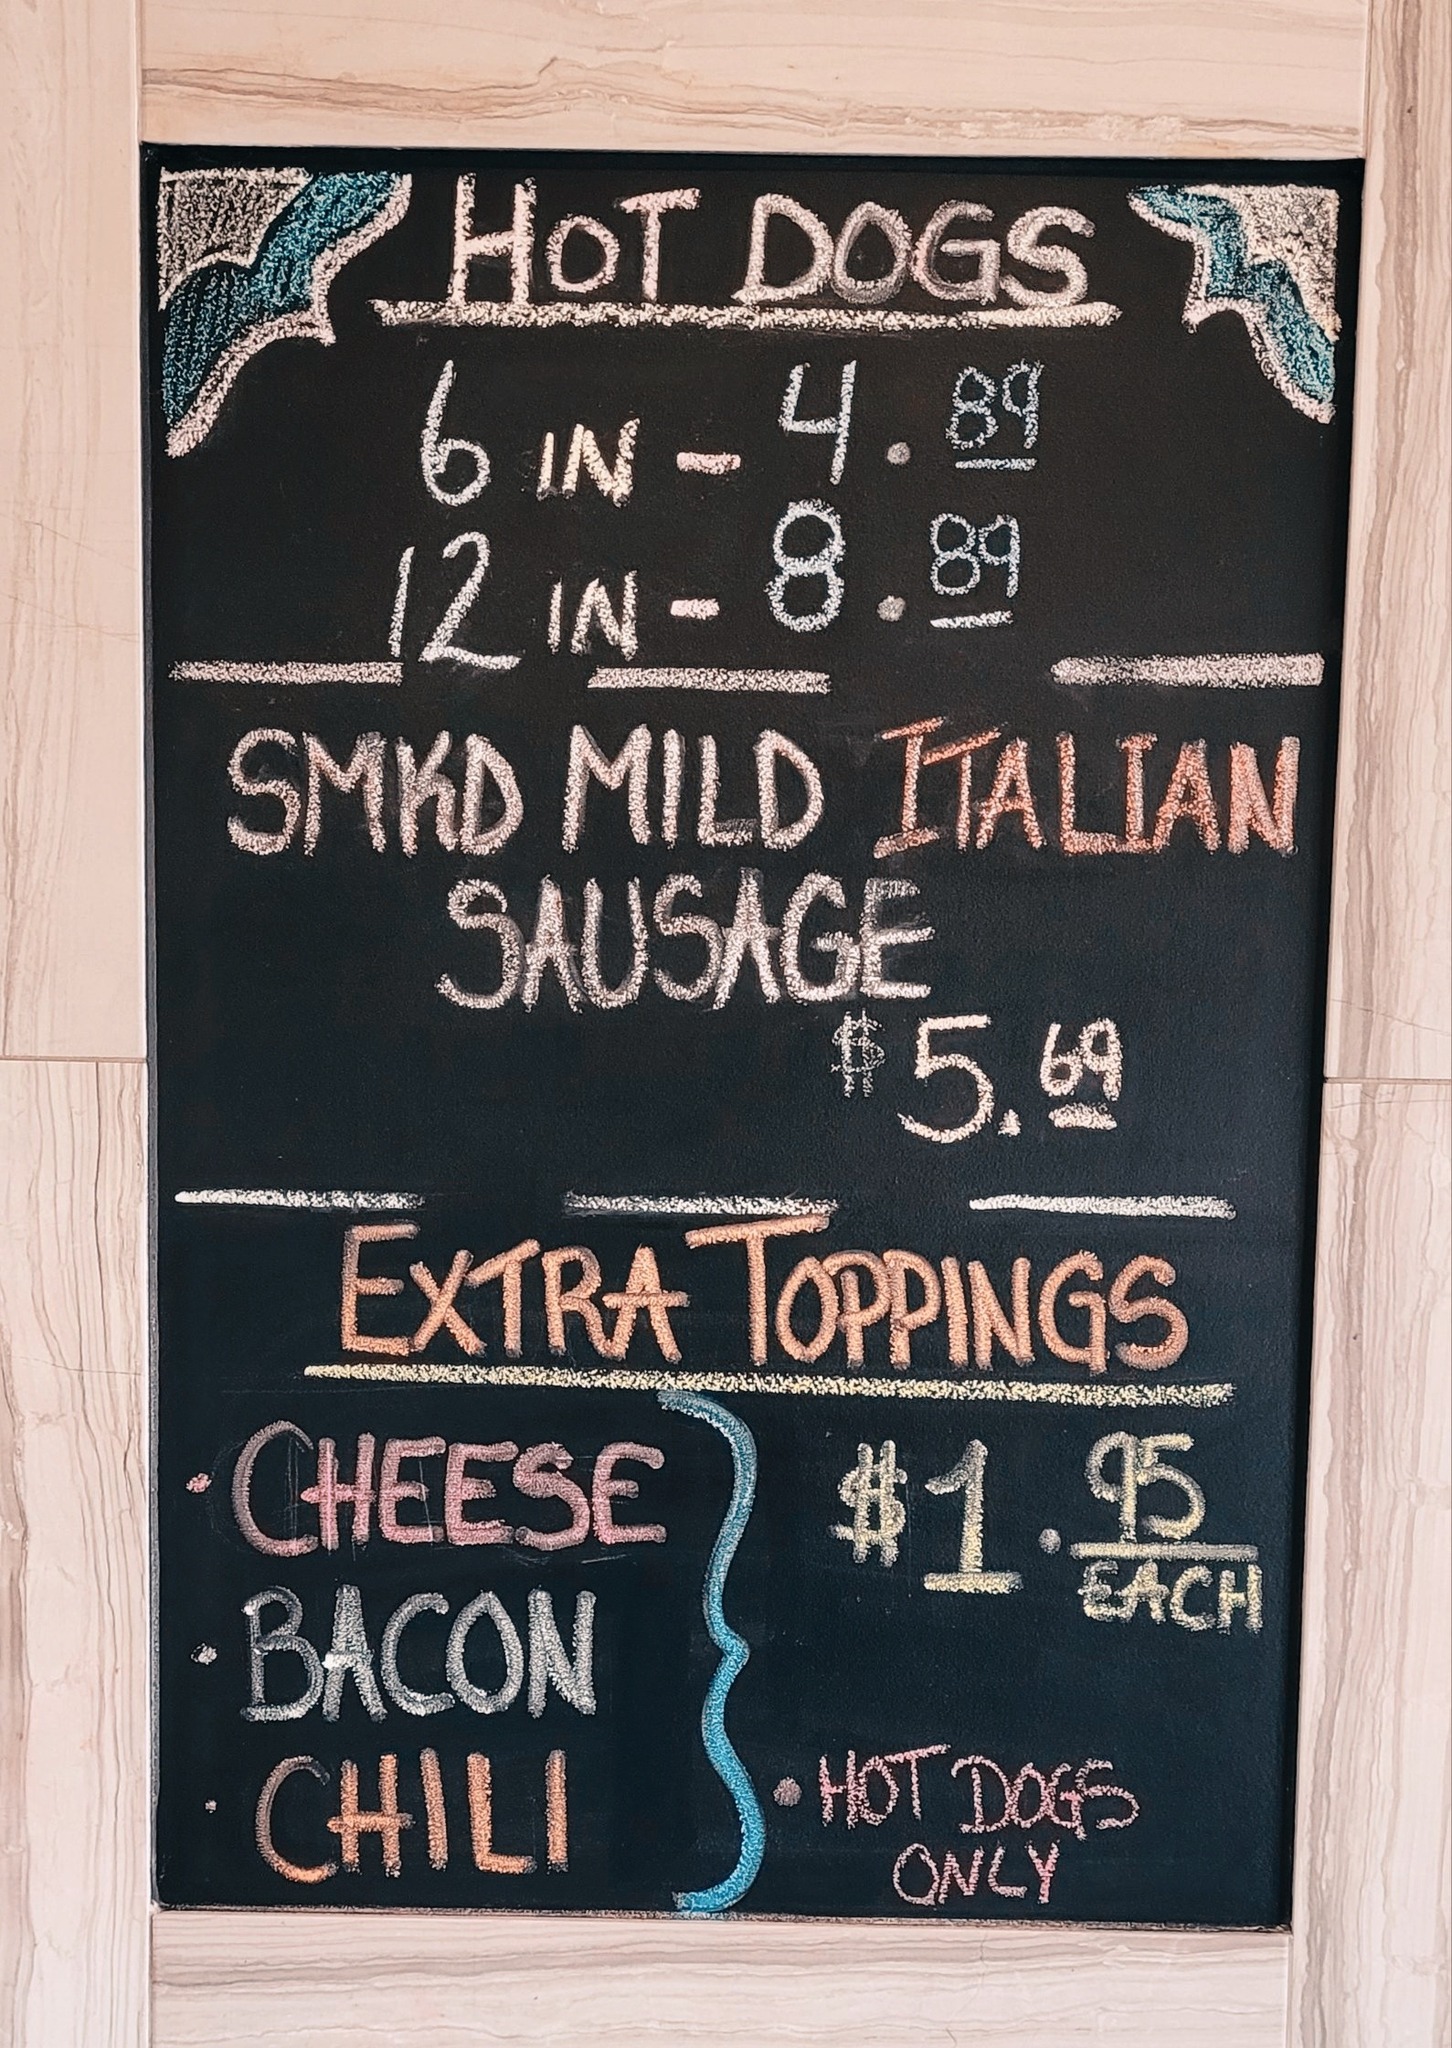 HOT DOGS
6 IN - 4.89
12 IN - 8.89
SMKD MILD ITALIAN
SAUSAGE
$5.69
EXTRA TOPPINGS
• CHEESE
$1.95
EACH
• BACON
• CHILI
• HOT DOGS
ONLY